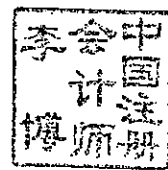 中国注册
会计师
李博